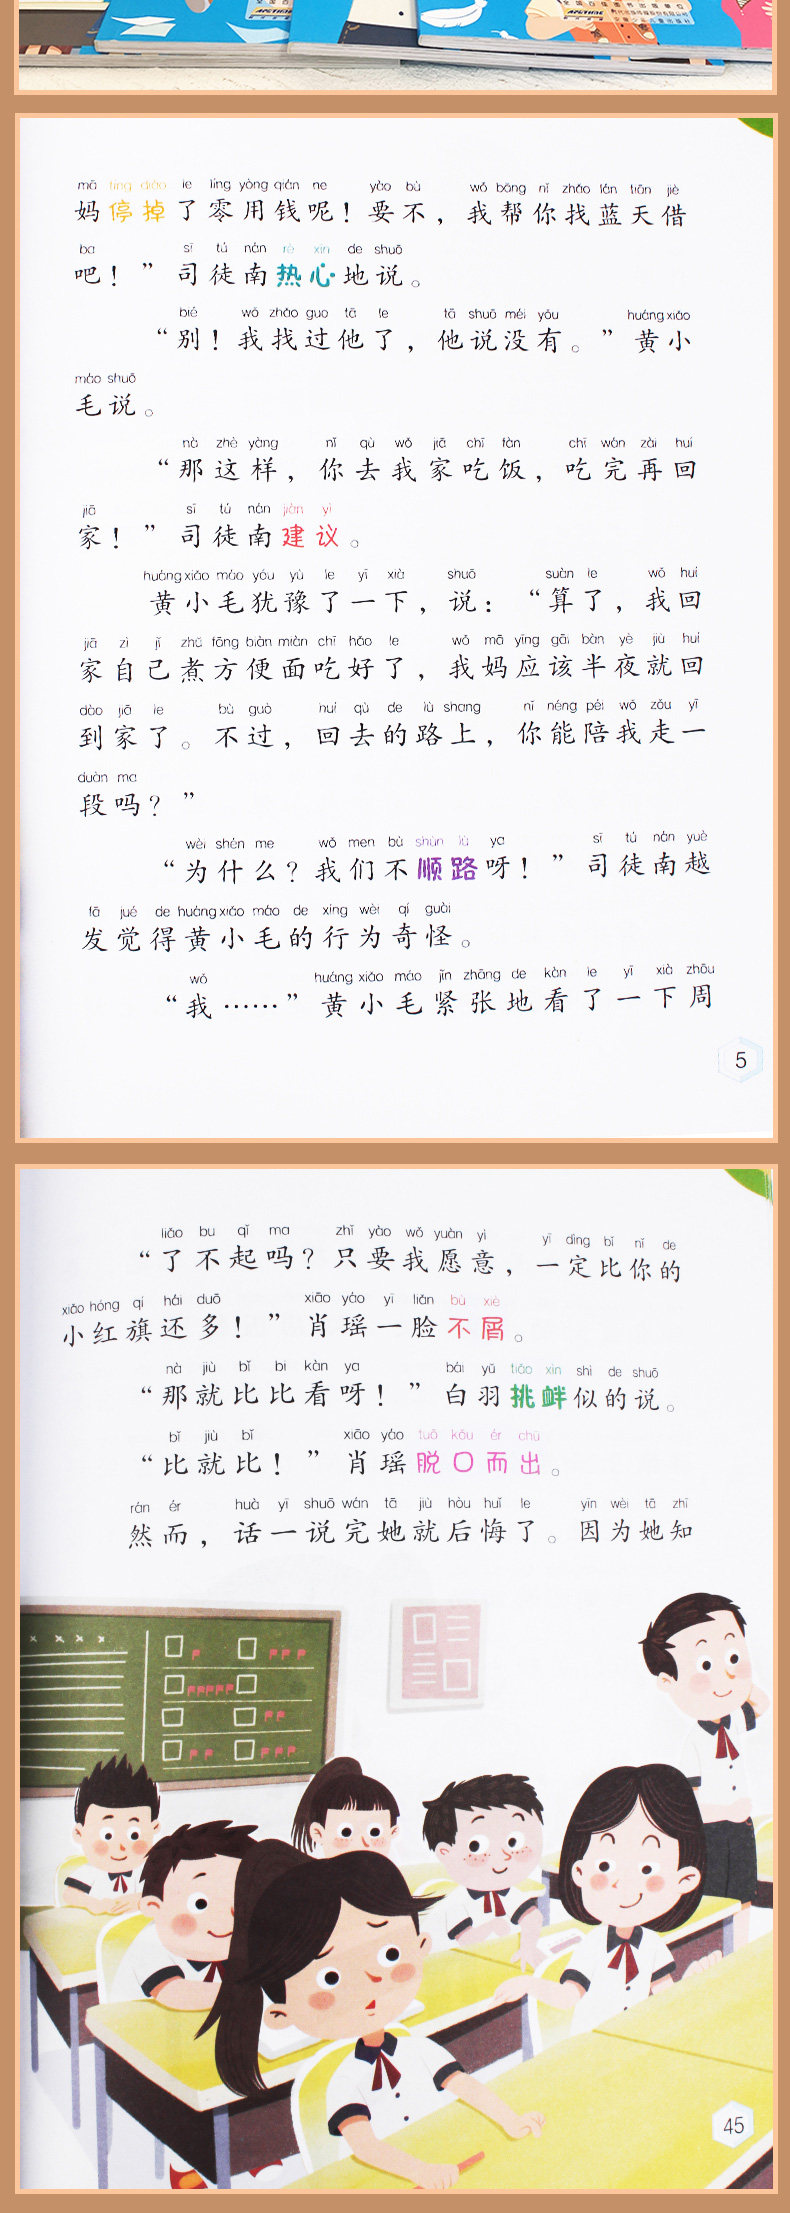 全国百佳图书出版单位
mā tíng diào le líng yòng qián ne yào bù wǒ bāng nǐ zhǎo lán tiān jiè
妈停掉了零用钱呢！要不，我帮你找蓝天借
ba sī tú nán rè xīn de shuō
吧！”司徒南热心地说。
bié wǒ zhǎo guo tā le tā shuō méi yǒu huáng xiǎo
“别！我找过他了，他说没有。”黄小
máo shuō
毛说。
nà zhè yàng nǐ qù wǒ jiā chī fàn chī wán zài huí
“那这样，你去我家吃饭，吃完再回
jiā sī tú nán jiàn yì
家！”司徒南建议。
huáng xiǎo máo yóu yù le yī xià shuō suàn le wǒ huí
黄小毛犹豫了一下，说：“算了，我回
jiā zì jǐ zhǔ fāng biàn miàn chī hǎo le wǒ mā yīng gāi bàn yè jiù huí
家自己煮方便面吃好了，我妈应该半夜就回
dào jiā le bú guò huí qù de lù shang nǐ néng péi wǒ zǒu yī
到家了。不过，回去的路上，你能陪我走一
duàn ma
段吗？”
wèi shén me wǒ men bù shùn lù ya sī tú nán yuè
“为什么？我们不顺路呀！”司徒南越
fā jué de huáng xiǎo máo de xíng wéi qí guài
发觉得黄小毛的行为奇怪。
wǒ huáng xiǎo máo jǐn zhāng de kàn le yī xià zhōu
“我……”黄小毛紧张地看了一下周
5
liǎo bu qǐ ma zhǐ yào wǒ yuàn yì yī dìng bǐ nǐ de
“了不起吗？只要我愿意，一定比你的
xiǎo hóng qí hái duō xiāo yáo yī liǎn bù xiè
小红旗还多！”肖瑶一脸不屑。
nà jiù bǐ bi kàn ya bái yǔ tiǎo xìn shì de shuō
“那就比比看呀！”白羽挑衅似的说。
bǐ jiù bǐ xiāo yáo tuō kǒu ér chū
“比就比！”肖瑶脱口而出。
rán ér huà yī shuō wán tā jiù hòu huǐ le yīn wèi tā zhī
然而，话一说完她就后悔了。因为她知
45